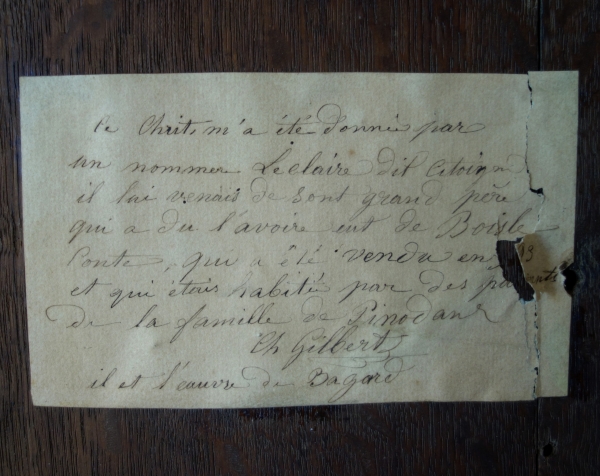 Ce Christ, m'a été donné par
un nommer Leclaire dit Citoien
il lui venais de sont grand père
qui a du l'avoire eut de Boisle
Conte, qui a été vendu en 93
et qui étais habitié par des parents
De la famille de Pinodan
Ch Gilbert
il et l'œuvre de Bagard